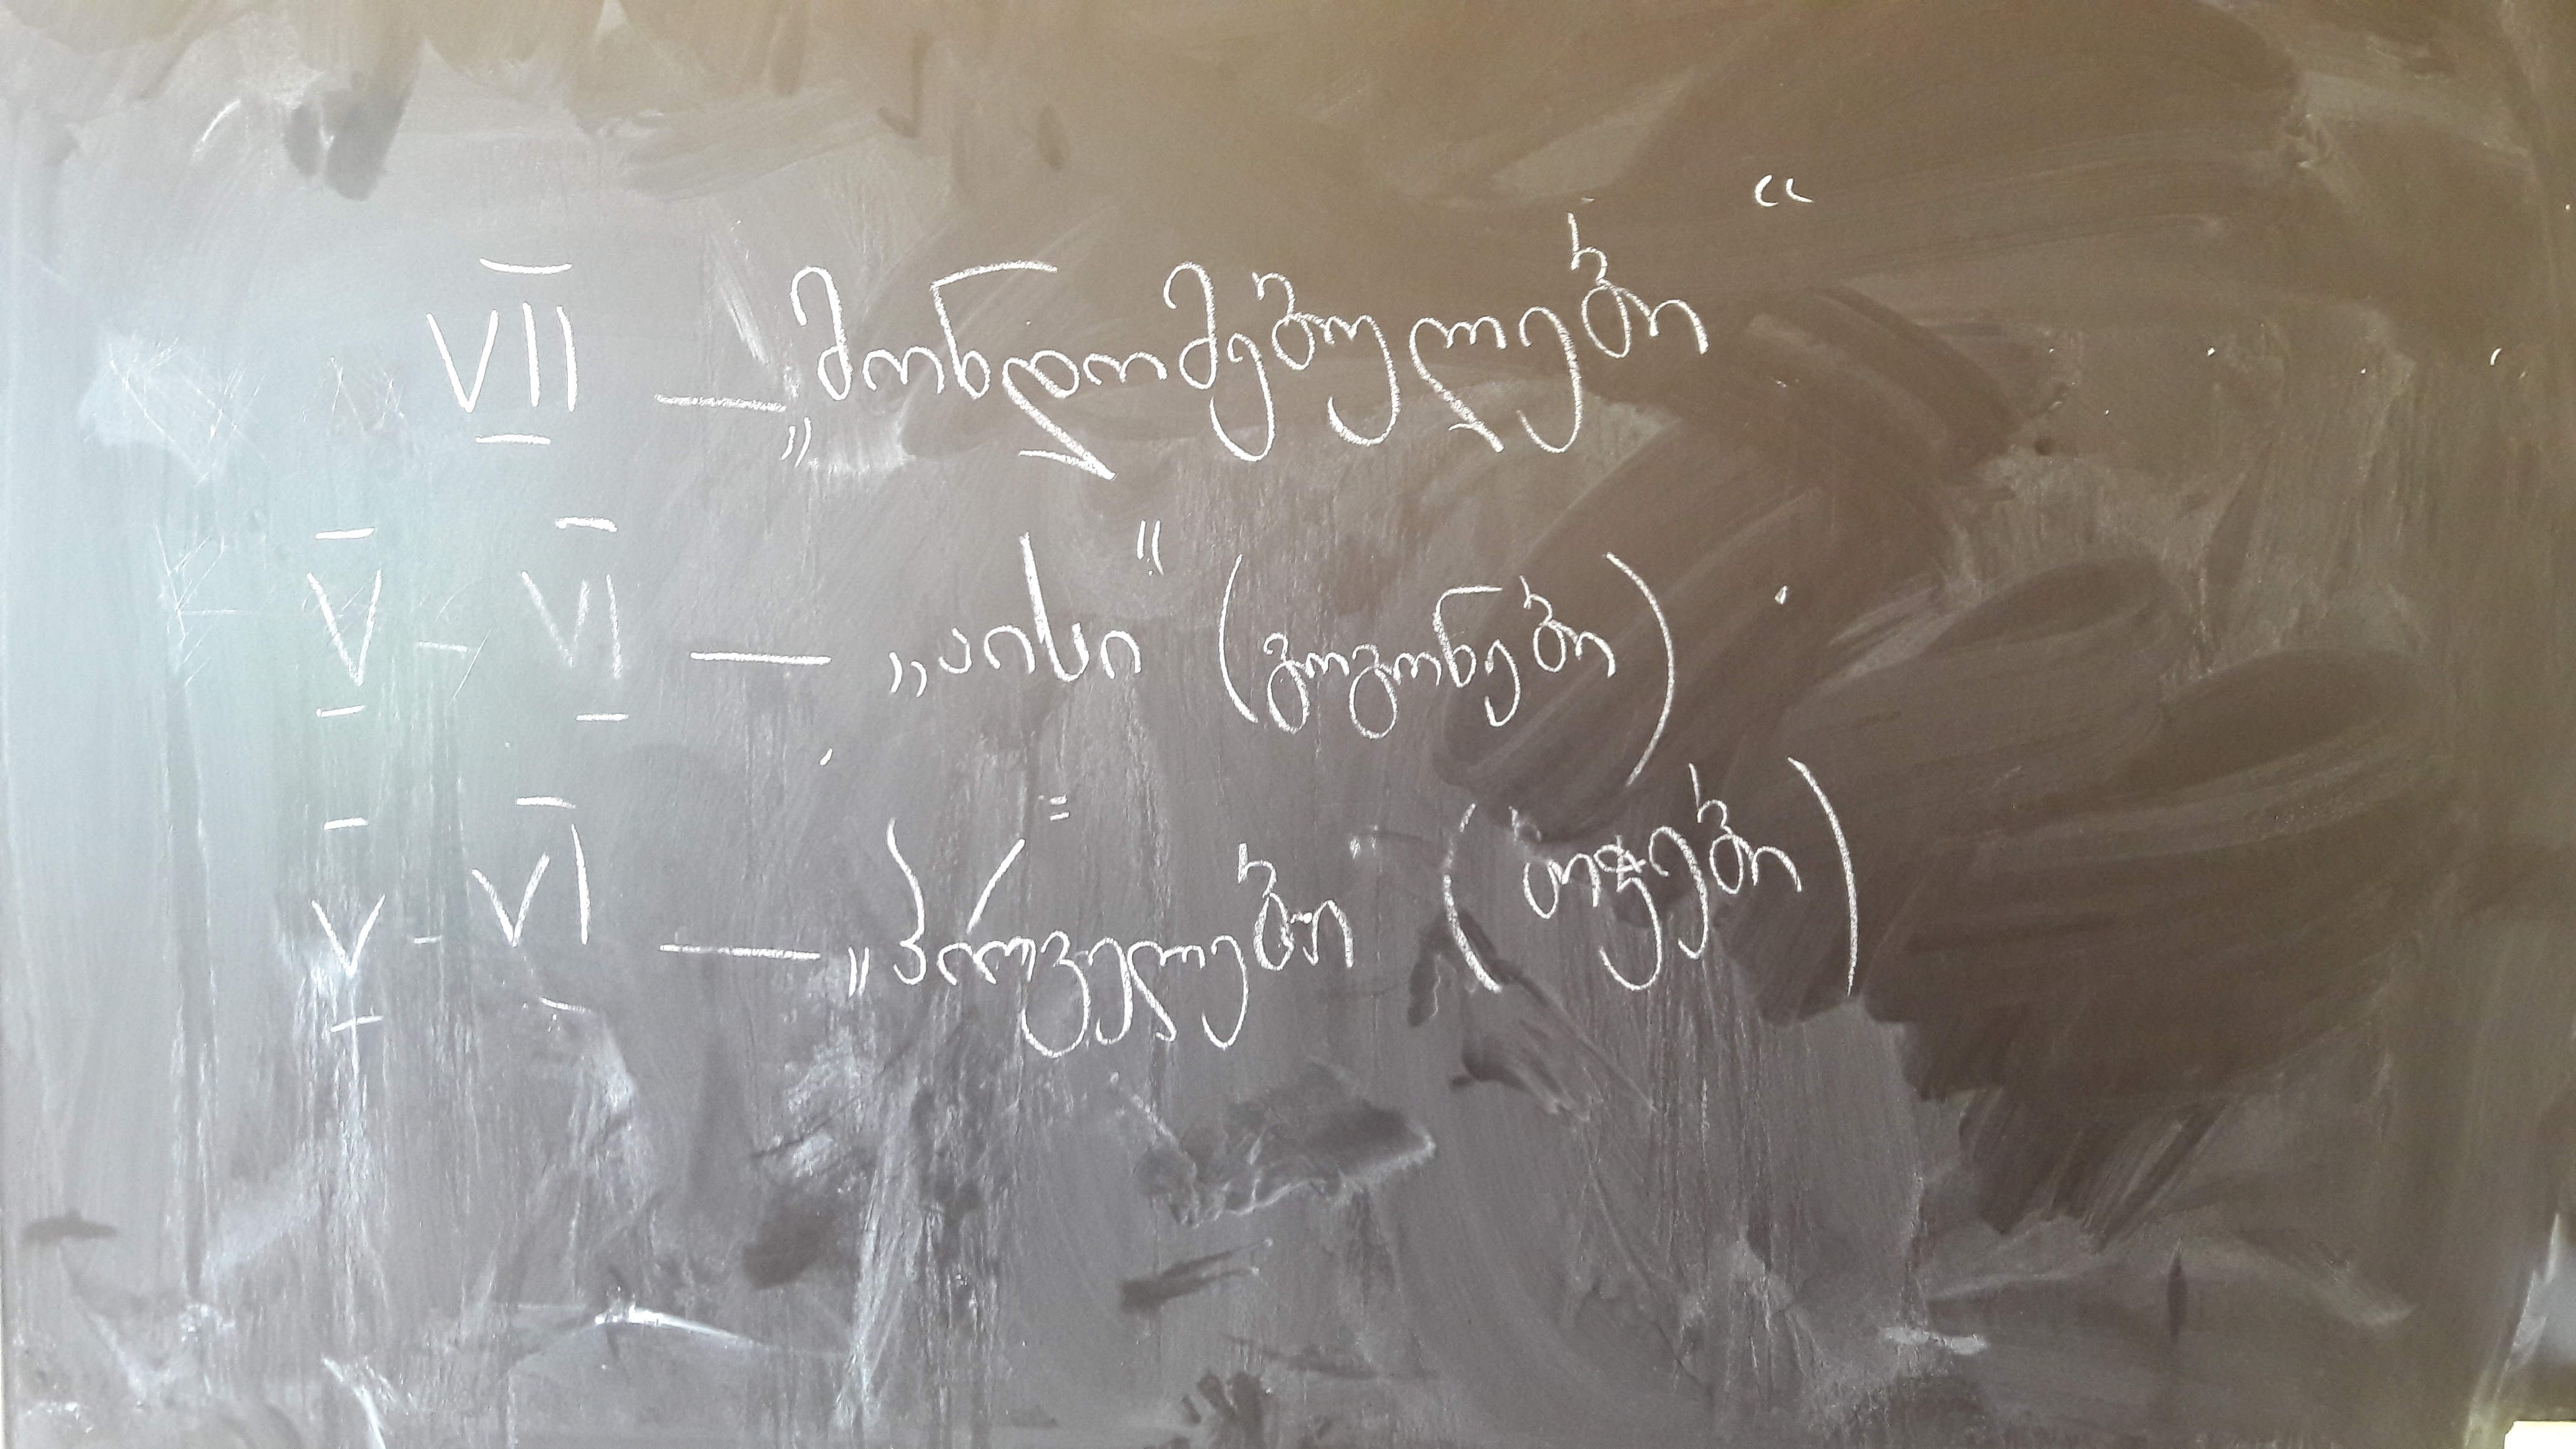 VII — „მონდომებულები“
V - VI — „აისი" (გოგონები)
V - VI — „პირველები" (ბიჭები)